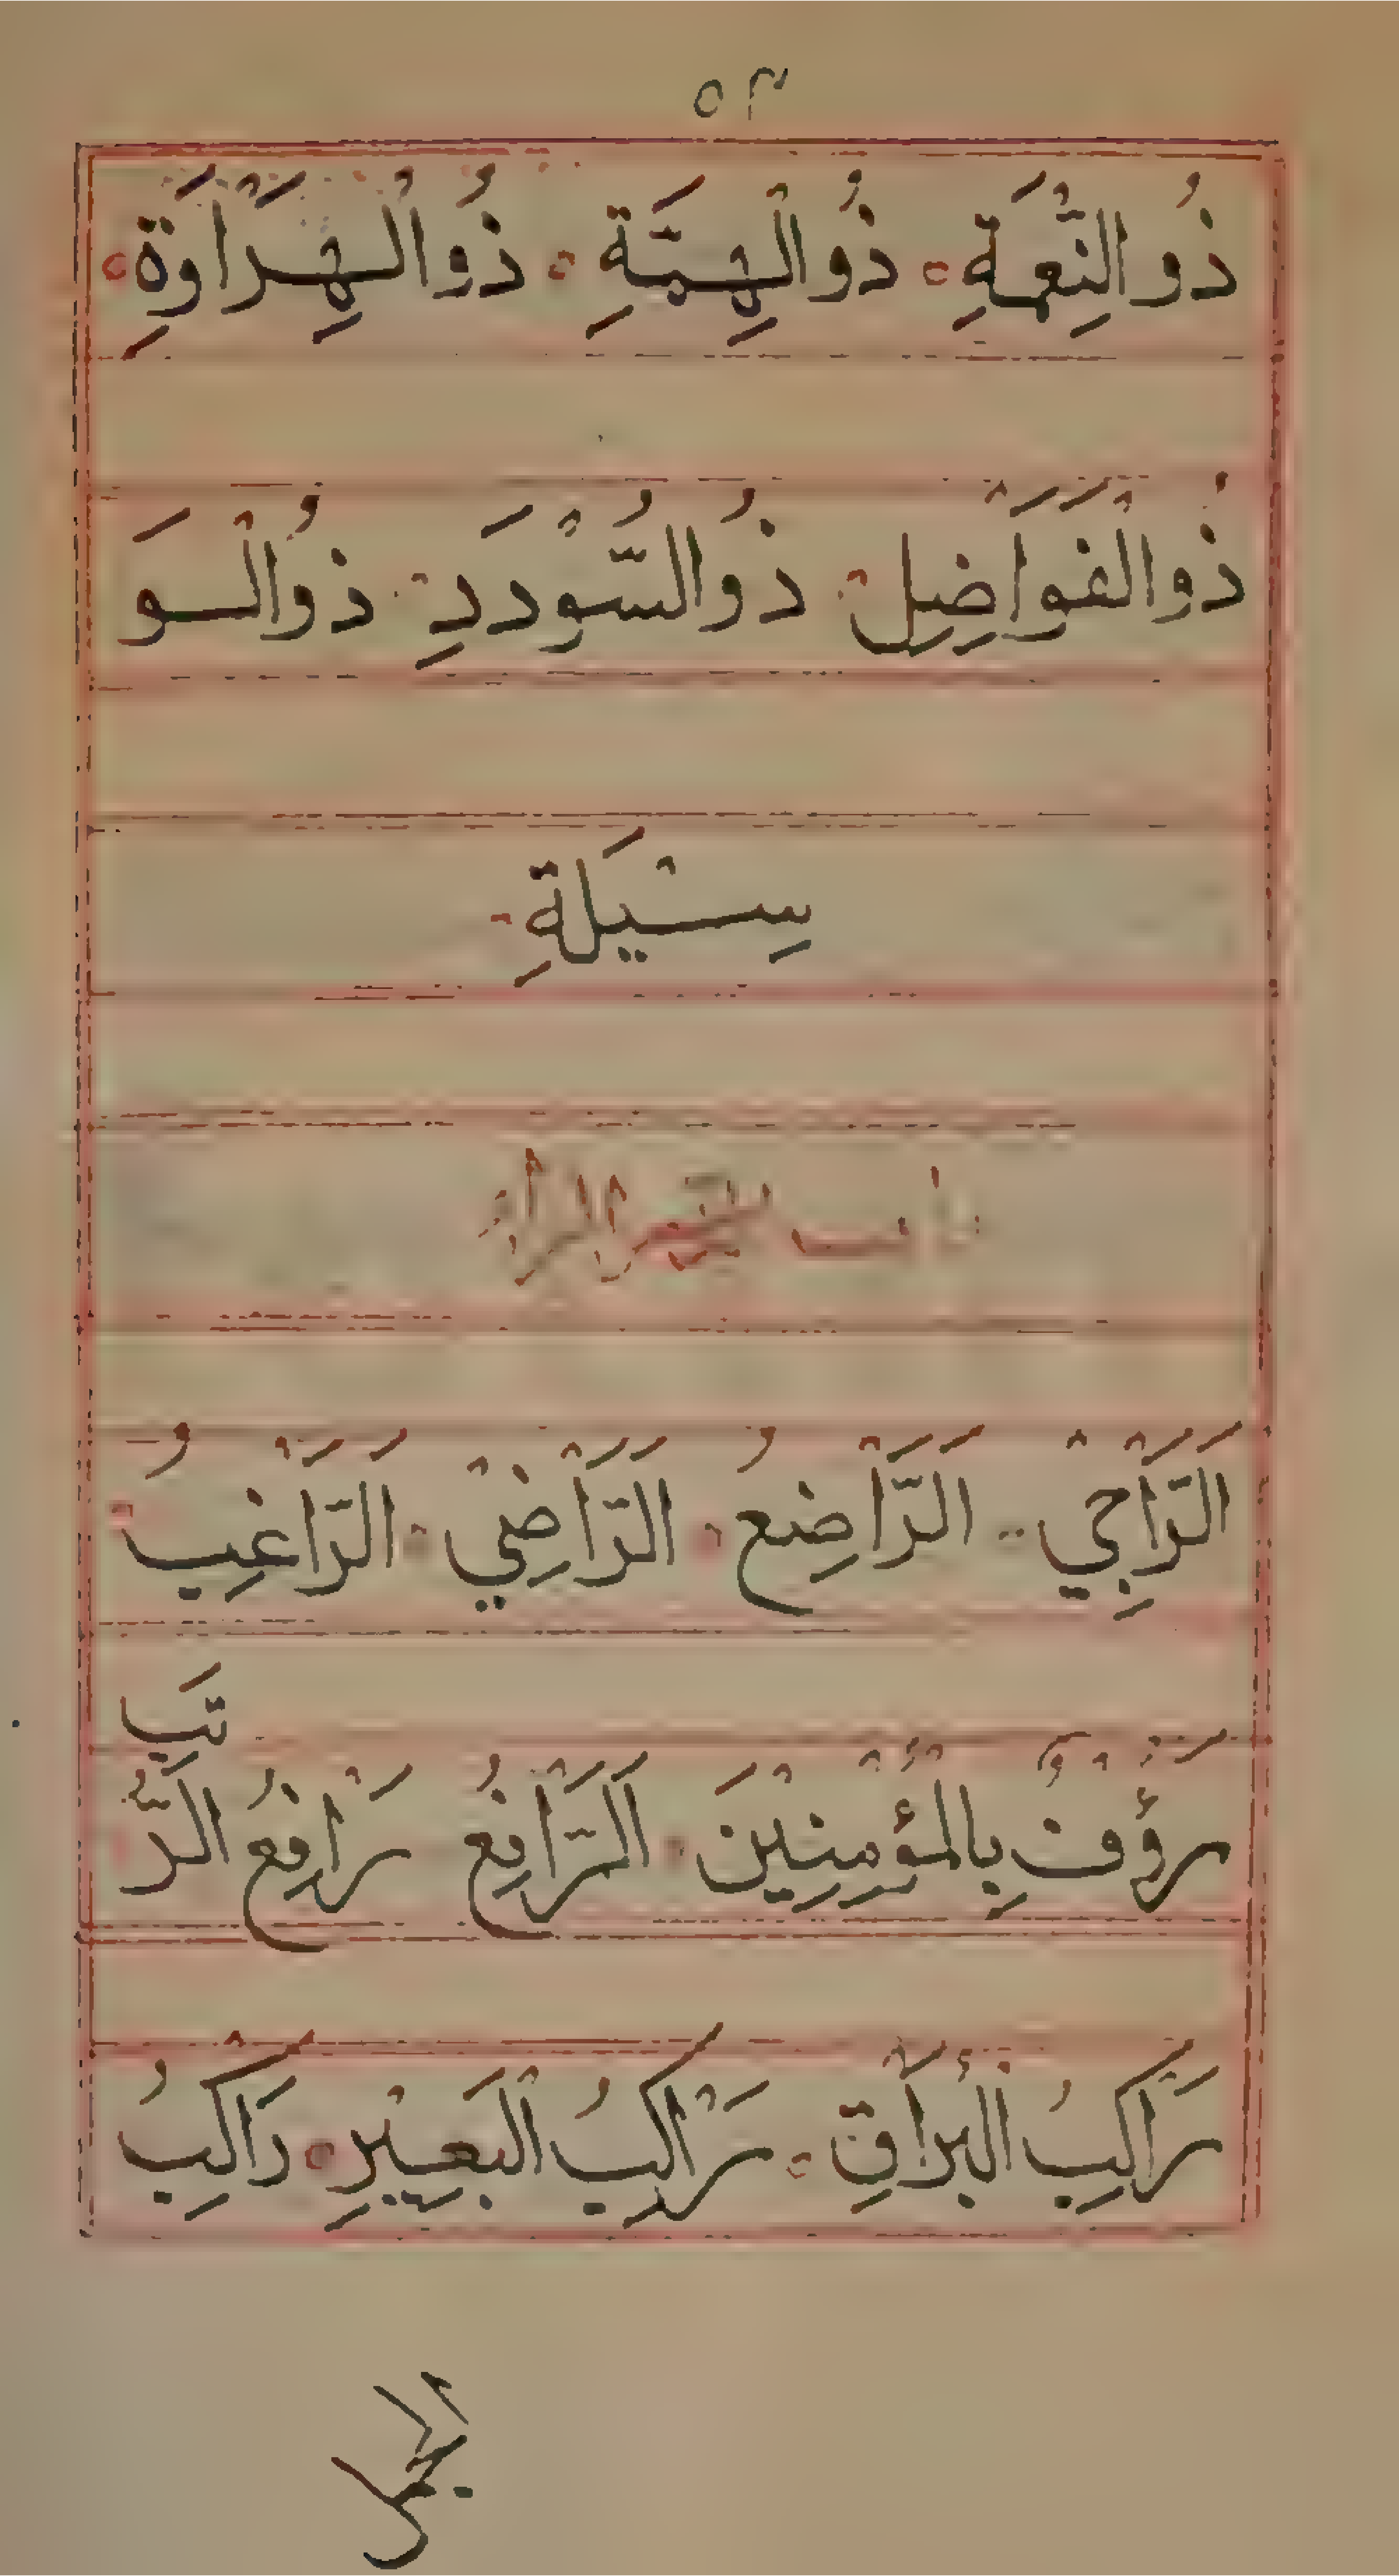 ٥٣
ذُو النِّعْمَةِ ذُو الْهِمَّةِ ذُو الْهِرَاوَةِ
ذُو الْفَوَاضِلِ ذُو السُّوْدَدِ ذُو الْوَ
سِيْلَةِ
باب الراء
الرَّاجِيْ الرَّاضِعُ الرَّاضِيْ الرَّاغِبُ
تَب
رَؤُفٌ بِالْمُؤْمِنِيْنَ الرَّافِعُ رَافِعُ الرُّ
رَاكِبُ الْبُرَاقِ رَاكِبُ الْبَعِيْرِ رَاكِبُ
الجمل